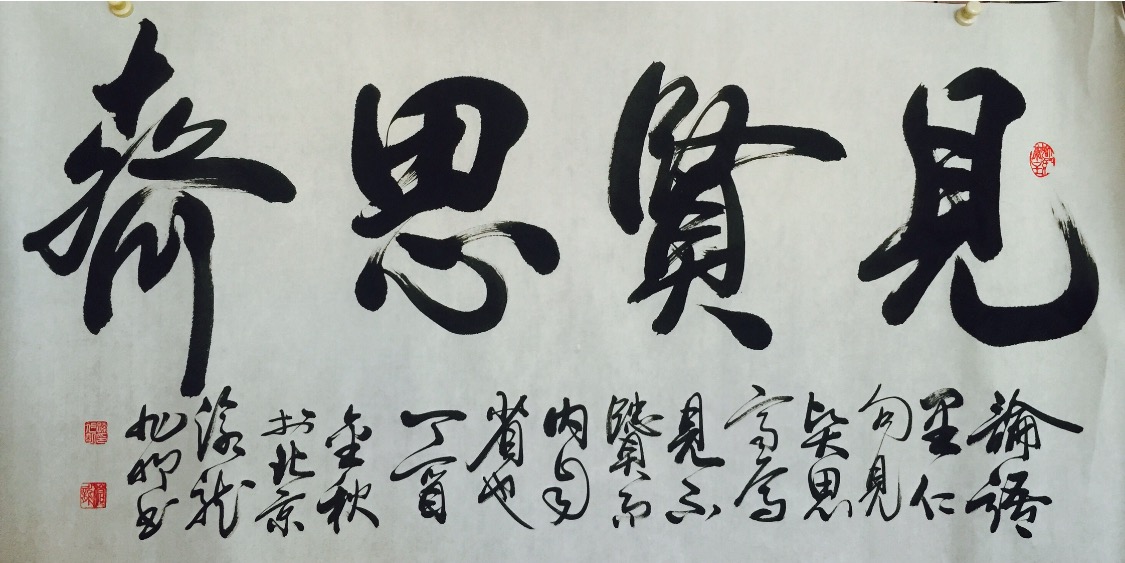 見賢思齊
論語
里仁
句見
賢思
齊焉
見不
賢而
内自
省也
丁酉
金秋
於北京
龍
书